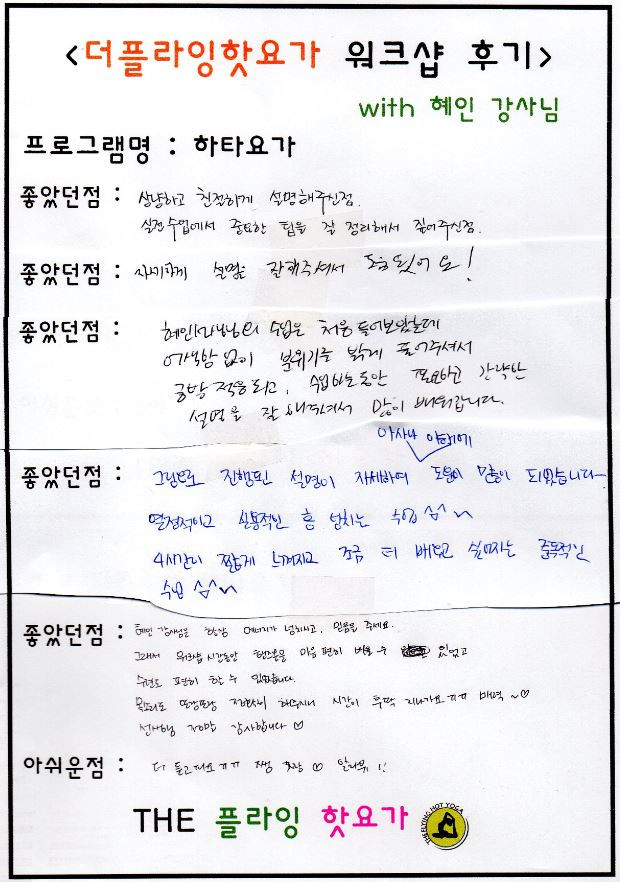 <더플라잉핫요가 워크샵 후기>
with 혜인 강사님
프로그램명 : 하타요가
좋았던점 : 상냥하고 친절하게 설명해주신점.
실전수업에서 중요한 팁을 잘 정리해서 짚어주신점.
좋았던점 : 자세하게 설명을 잘해주셔서 도움됐어요!
좋았던점 : 혜인강사님의 수업은 처음 들어보았는데
어색함 없이 분위기를 밝게 풀어주셔서
금방 적응되고, 수업하는동안 필요하고 간략한
설명을 잘 해주셔서 많이 배워갑니다.
아사나 이해에
좋았던점 : 그림으로 진행된 설명이 자세하여 도움이 많이 되었습니다~
열정적이고 실용적인 흥 넘치는 수업 슴^~
4시간이 짧게 느껴지고 조금 더 배우고 싶어지는 중독적인
수업 슴^~
좋았던점 : 혜인 강사님은 항상 에너지가 넘치시고, 믿음을 주세요.
그래서 워크샵 시간동안 핸즈온을 마음 편히 배울 수 있었고
수련도 편히 할 수 있었습니다.
목소리도 또랑또랑 해주시니 시간이 후딱 지나가요 ㅠㅠ 매력 ~♡
선생님 감사합니다 ♡
아쉬운점 : 더 듣고싶어요 ㅠㅠ 쌤 ♡ 알라뷰 !!
THE 플라잉 핫요가
THE FLYING HOT YOGA